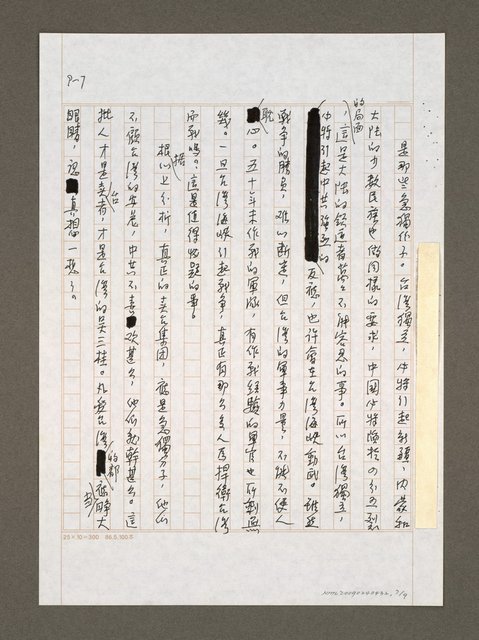 9-7
是那些急獨份子。台灣獨立，必將引起新疆，內蒙和
大陸的少數民族也做同樣的要求，中國必將陷於四分五裂
的局面，這是大陸的統治者萬萬不能容忍的事。所以台灣獨立，
必將引起中共強烈的反應，也許會在台灣海峽動武。雖然
戰爭的勝負，難以斷定，但台灣的軍事力量，不能不使人
耽心。五十年未作戰的軍隊，有作戰經驗的軍官也所剩無
幾。一旦台灣海峽引起戰爭，真正有那么多人為捍衛台灣
而戰嗎。這是值得懷疑的事。
根據以上分析，真正的賣台集團，應是急獨分子，他們
不顧台灣的安危，中共不喜歡甚么，他們就幹甚么。這
批人才是賣台者，才是台灣的吳三桂。凡愛台灣的都應當睜大
眼睛，認真想一想了。
25×10=300 86.5.100本
NMTL20090240432, 7/9